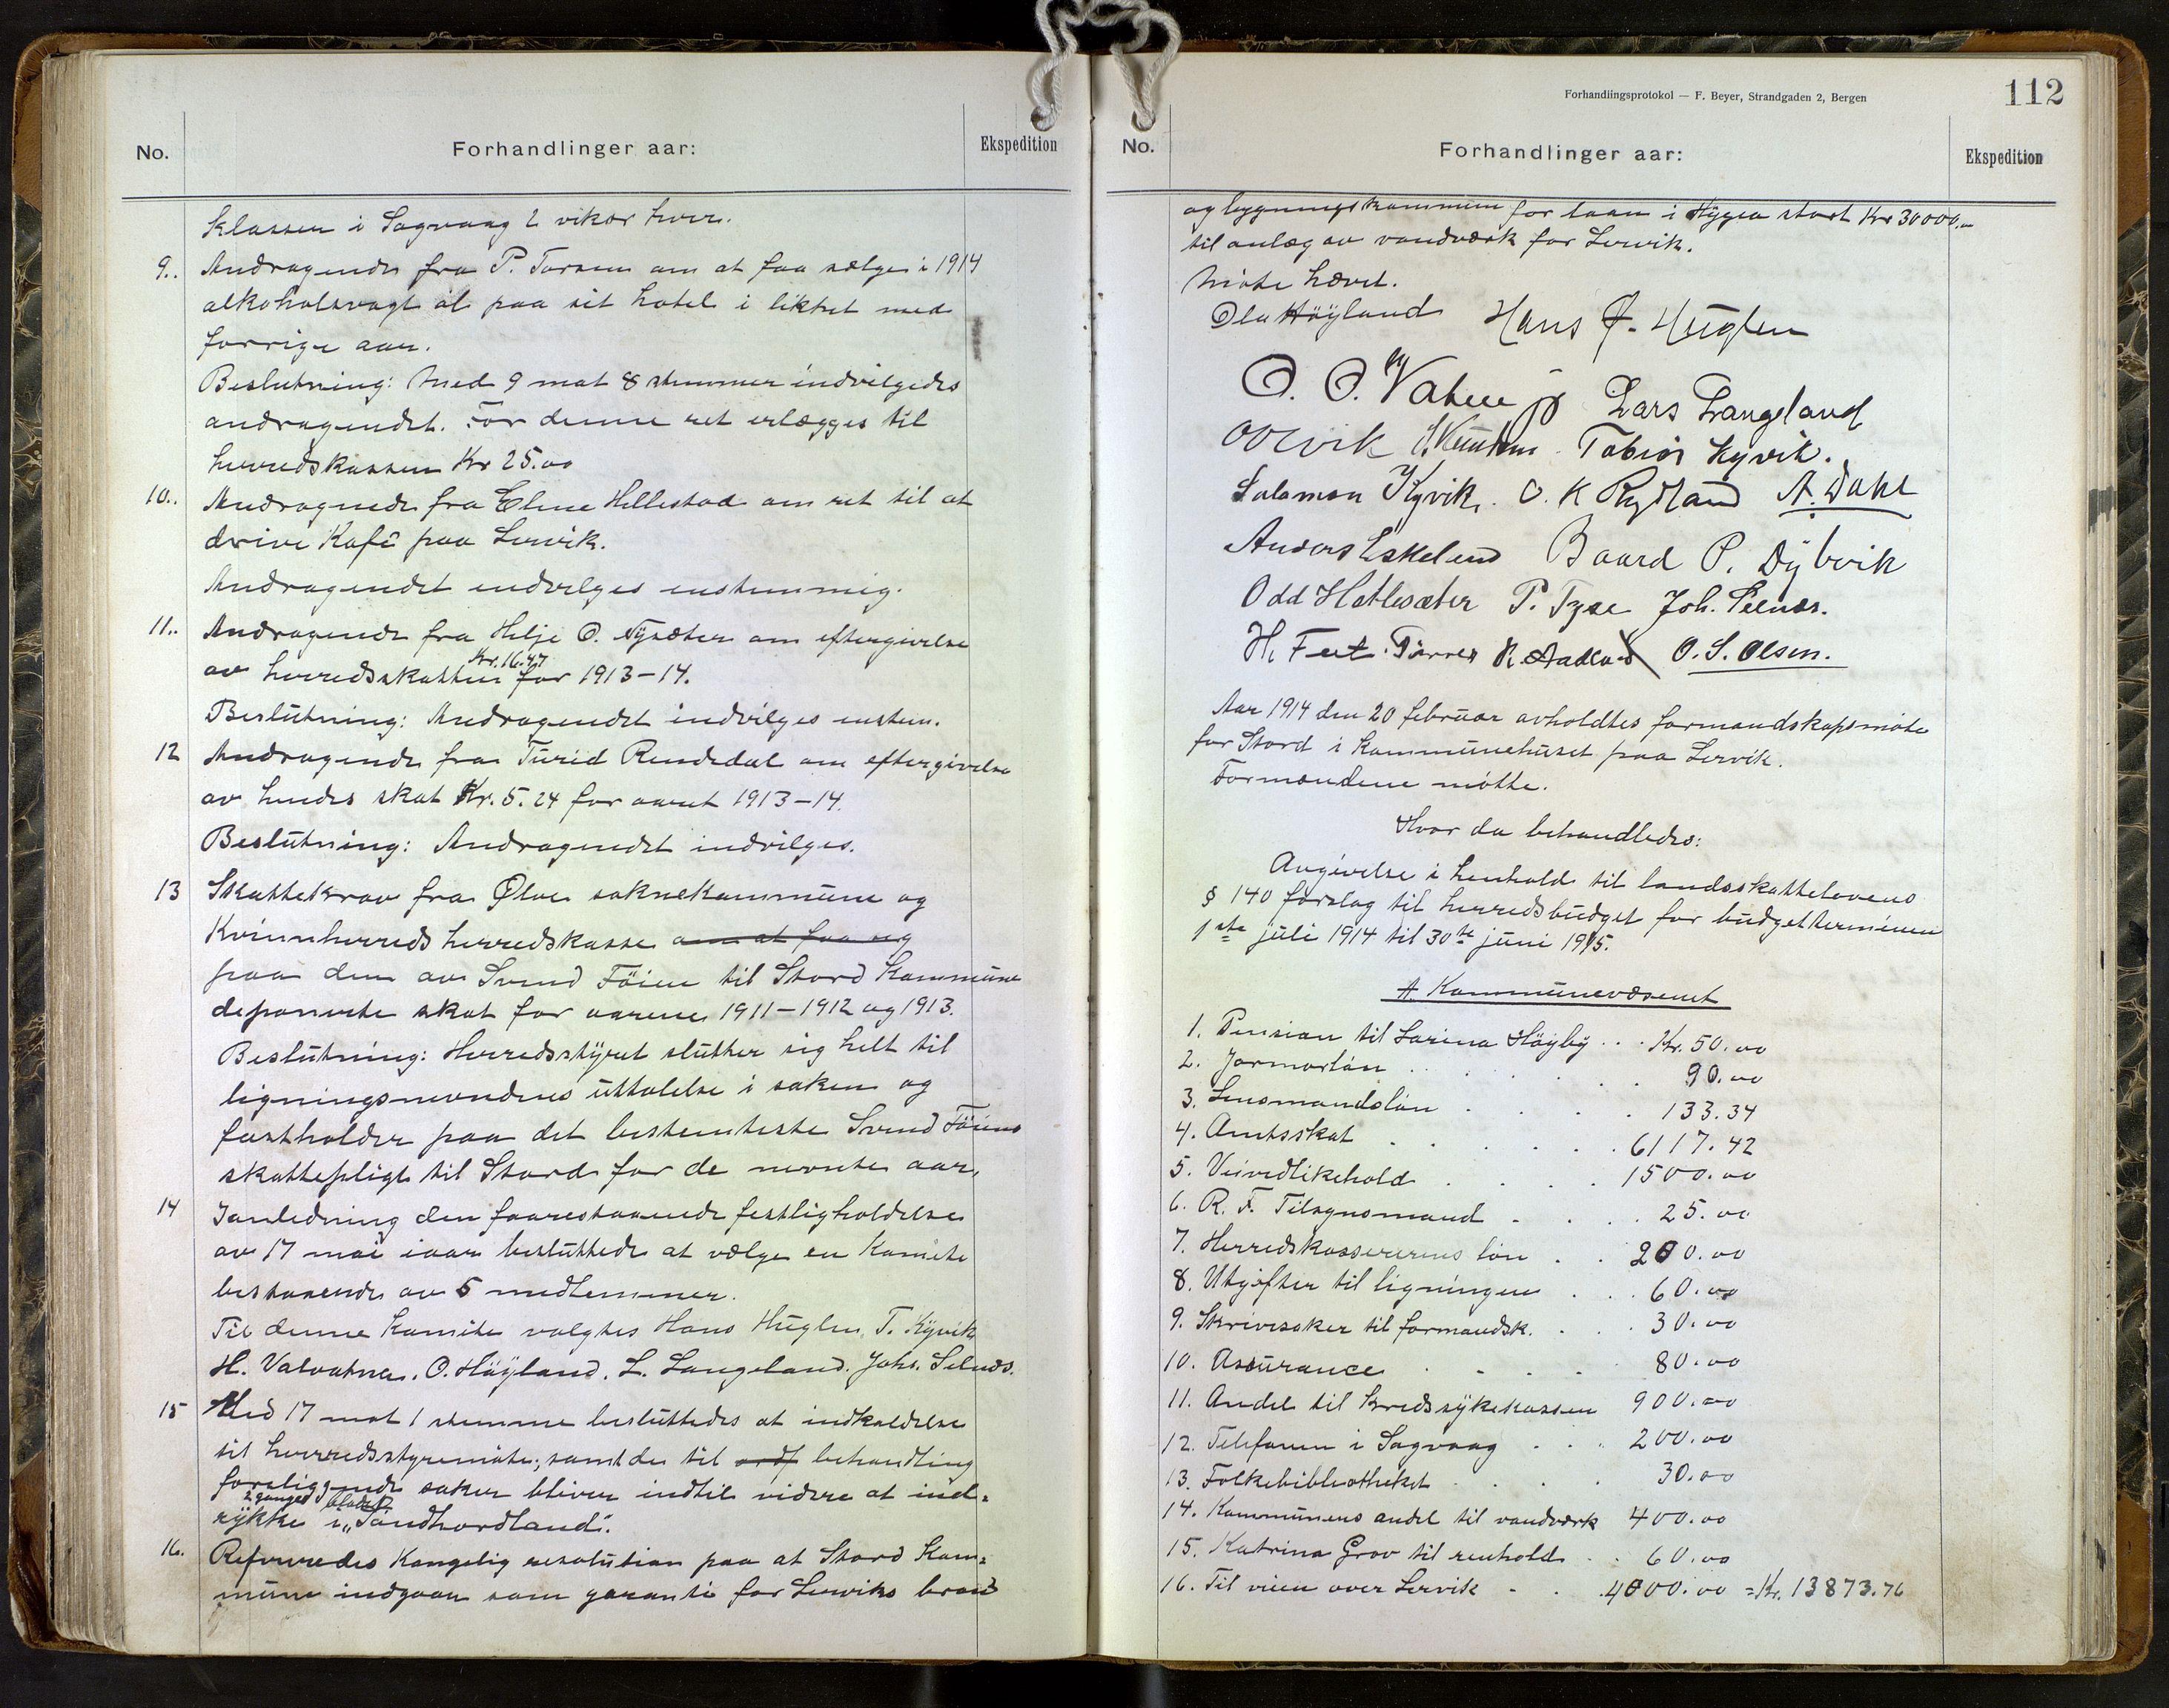 No.
Forhandlinger aar:
Ekspedition
klassen i Sagvaag 2 vikor hver.
9.. Andragende fra P. Torsen om at faa sælge i 1914
alkoholsvagt øl paa sit hotel i likhet med
forrige aar.
Beslutning: Med 9 mot 8 stemmer indvilgedes
andragendet. For denne ret erlægges til
herredskassen Kr 25.00
10.. Andragende fra Eline Hillestad om ret til at
drive Kafé paa Lervik.
Andragendet indvilges enstemmig.
11.. Andragende fra Helje O. Nysæter om eftergivelse
Kr. 16.47
av herredsskatten for 1913-14.
Beslutning: Andragendet indvilges enstem.
12 Andragende fra Turid Rendedal om eftergivelse
av hendes skat Kr. 5.24 for aaret 1913-14.
Beslutning: Andragendet indvilges.
13 Skattekrav fra Ølve soknekommune og
Kvinnherreds herredskasse om at faa seg
paa den av Svend Föien til Stord Kommune
deponerte skat for aarene 1911-1912 og 1913.
Beslutning: Herredsstyret slutter sig helt til
ligningsnevndens uttalelse i saken og
fastholder paa det bestemteste Svend Föiens
skattepligt til Stord for de nevnte aar,
14 Ianledning den forestaaende festligholdelse
av 17 mai iaar besluttedes at vælge en Komite
bestaaende av 5 medlemmer.
Til denne Komite valgtes Hans Huglen, T. Kyvik
H. Valvatne. O. Höyland. L. Langeland. Johs. Selnæs.
15 Med 17 mot 1 stemme besluttedes at indkaldelse
til herredsstyremöte, samt de til ordf behandling
foreliggende saker bliver indtil videre at ind=
2 ganger bladet
rykke i „Sundhordland".
16. Refereredes Kongelig resolution paa at Stord Kom=
mune indgaar som garanti for Lerviks brand
Forhandlingsprotokol — F. Beyer, Strandgaden 2, Bergen
112
No.
Forhandlinger aar:
Ekspedition
og bygningskommune for laan i Hygea stort Kr 30000.00
til anlæg av vandverk for Lervik.
Möte hævet.
Ola Höyland Hans J. Huglen
O. O. Vatne jr Lars Langeland
Tobias Kyvik.
Salomon Kyvik. O. K Rydland A. Dahl
Anders Eskeland Baard P. Dybvik
Odd Hatlesæter P. Tyse Joh. Selnæs.
H. Feet. Törres R. Aadland O. S. Olsen.
Aar 1914 den 20 februar avholdtes formandskapsmöte
for Stord i kommunehuset paa Lervik.
Formændene mötte.
Hvor da behandledes:
Avgivelse i henhold til landsskattelovens
§ 140 forslag til herredsbudget for budgetterminen
1ste juli 1914 til 30te juni 1915.
A Kommunevæsenet
1. Pension til Larina Höyby . . . Kr. 50.00
2. Jormorlön . . . 90.00
3. Lensmandslön . . . 133.34
4. Amtsskat . . . 6117.42
5. Veivedlikehold . . . 1500.00
6. R. F. Tilsynsmand . . . 25.00
7. Herredskassererens lön . . 200.00
8. Utgifter til ligningen . . . 60.00
9. Skrivesaker til formandsk. . . . 30.00
10. Assurance . . . 80.00
11. Andel til Kredssykekassen 900.00
12. Telefonen i Sagvaag . . . 200.00
13. Folkebibliotheket . . . 30.00
14. Kommunens andel til vandverk 400.00
15. Katrina Grov til renhold . . 60.00
16. Til veien over Lervik . . . 4000.00 = Kr. 13873.76